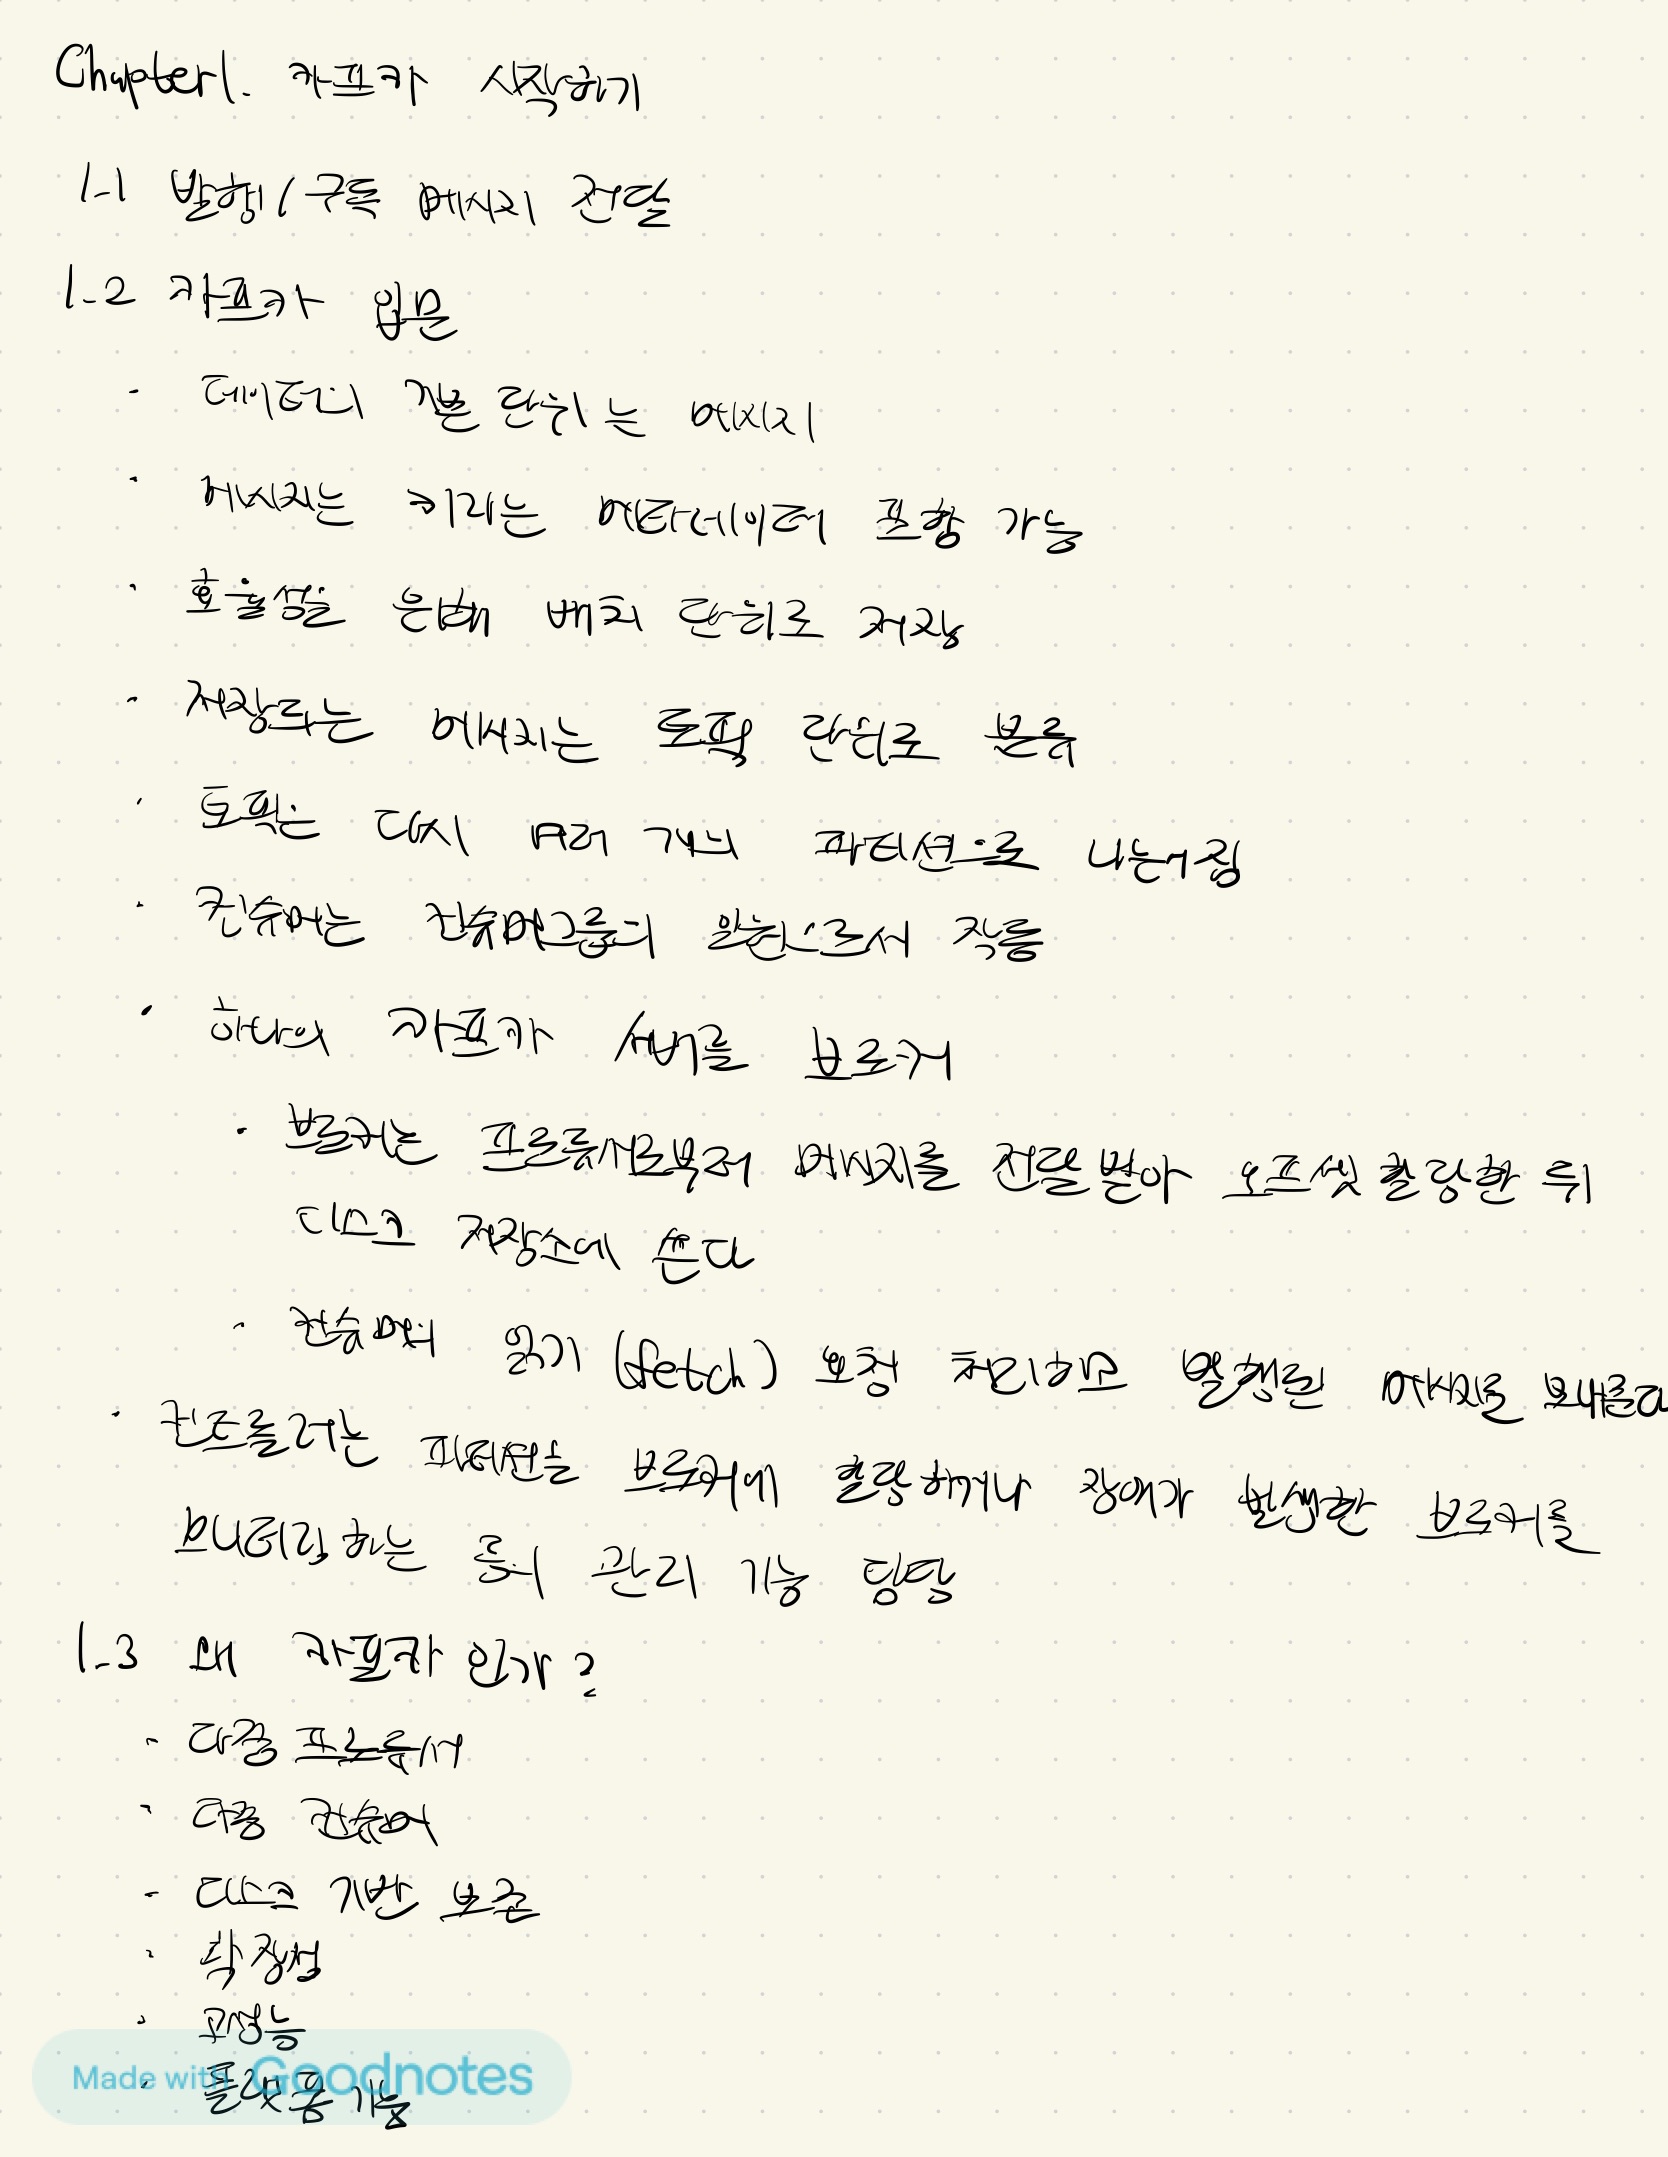 Chapter1. 카프카 시작하기
1-1 발행/구독 메시지 전달
1-2 카프카 입문
- 데이터의 기본 단위는 메시지
· 메시지는 키라는 메타데이터 포함 가능
· 효율성을 위해 배치 단위로 저장
- 저장되는 메시지는 토픽 단위로 분류
· 토픽은 다시 여러 개의 파티션으로 나눠짐
· 컨슈머는 컨슈머그룹의 일원으로서 작동
· 하나의 카프카 서버를 브로커
· 브로커는 프로듀서로부터 메시지를 전달받아 오프셋 할당한 뒤
디스크 저장소에 쓴다
· 컨슈머의 읽기 (fetch) 요청 처리하고 발행된 메시지를 보내준다
· 컨트롤러는 파티션을 브로커에 할당하거나 장애가 발생한 브로커를
모니터링하는 등의 관리 기능 담당
1-3 왜 카프카인가?
- 다중 프로듀서
- 다중 컨슈머
- 디스크 기반 보존
· 확장성
· 고성능
· 플랫폼 기능
Made with Goodnotes